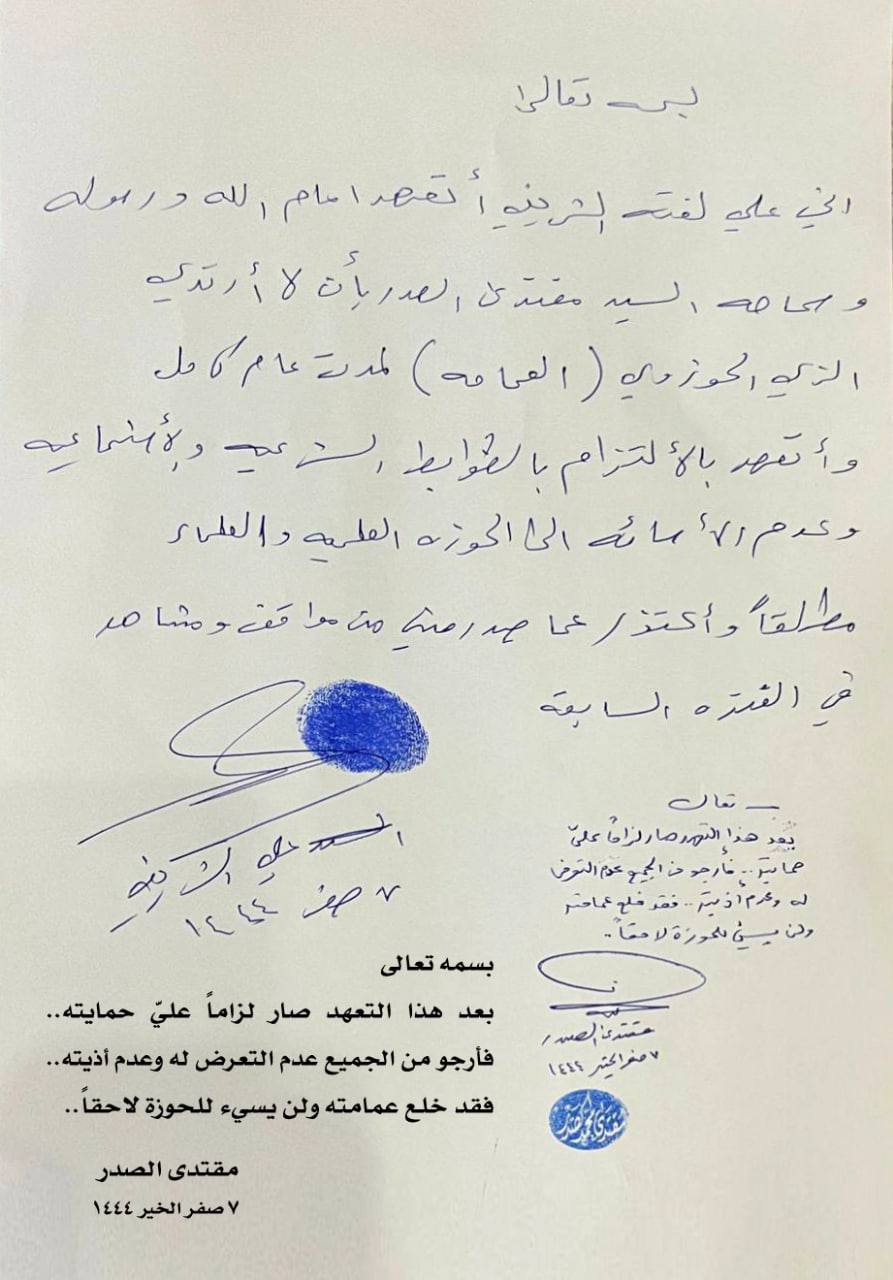 بسمه تعالى
اني علي لفته الشريفي أتعهد امام الله ورسوله
وسماحه السيد مقتدى الصدر بأن لا أرتدي
الزي الحوزوي (العمامه) لمدة عام كامل
وأتعهد بالألتزام بالظوابط الشرعيه والأجتماعيه
وعدم الأسائه الى الحوزه العلميه والعلماء
مطلقاً وأعتذر عما صدر مني من مواقف ومشاهد
في الفتره السابقة
علي الشريفي
٧ صفر ١٤٤٤
بسمه تعالى
بعد هذا التعهد صار لزاماً عليّ
حمايته.. فأرجو من الجميع عدم التعرض
له وعدم أذيته.. فقد خلع عمامته
ولن يسيء للحوزة لاحقاً..
مقتدى الصدر
٧ صفر الخير ١٤٤٤
بسمه تعالى
بعد هذا التعهد صار لزاماً عليّ حمايته..
فأرجو من الجميع عدم التعرض له وعدم أذيته..
فقد خلع عمامته ولن يسيء للحوزة لاحقاً..
مقتدى الصدر
٧ صفر الخير ١٤٤٤